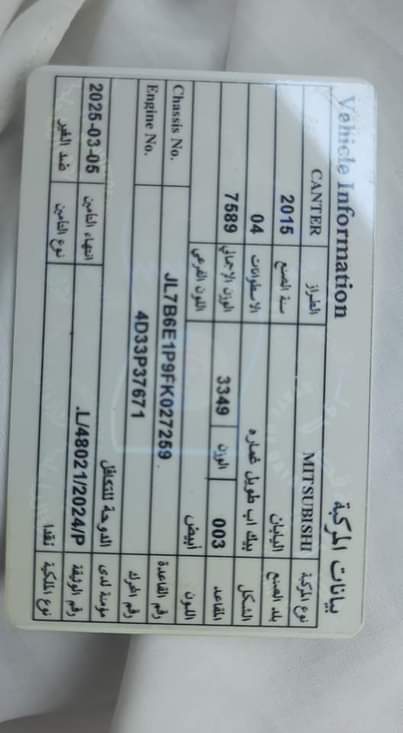 Vehicle Information بيانات المركبة
CANTER الطراز MITSUBISHI نوع المركبة
2015 سنة الصنع اليابان بلد الصنع
04 الاسطوانات بيك اب طويل غماره الشكل
7589 الوزن الاجمالي 3349 الوزن 003 المقاعد
اللون الفرعي أبيض اللون
Chassis No. JL7B6E1P9FK027259 رقم القاعدة
Engine No. 4D33P37671 رقم المحرك
2025-03-05 انتهاء التأمين الدوحة للتكافل مؤمنة لدى
.L/48021/2024/P رقم الوثيقة
ضد الغير نوع التأمين نقدا نوع الملكية